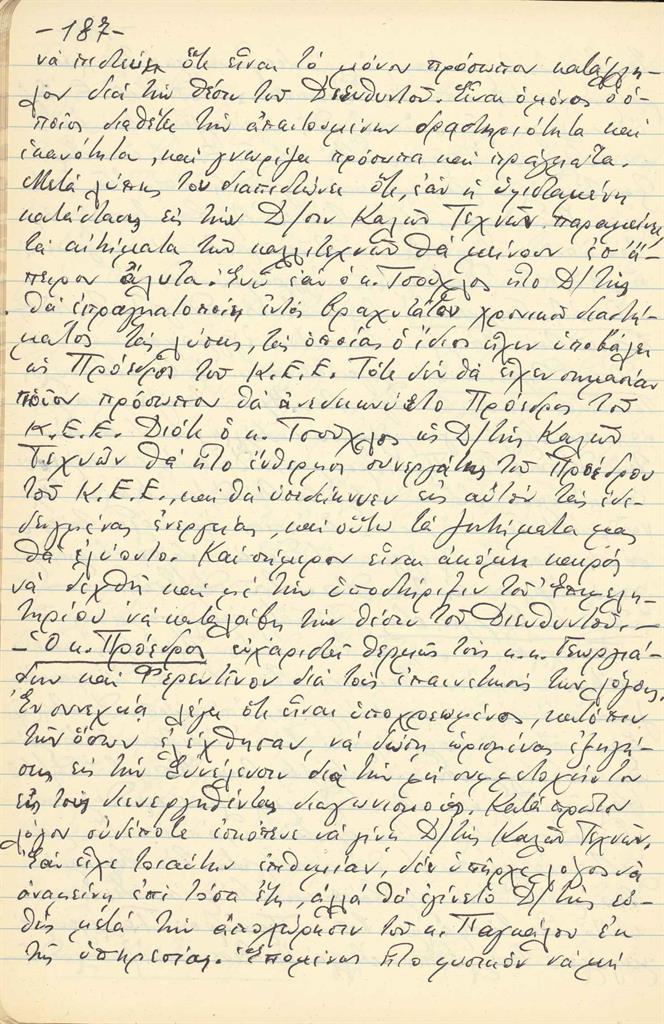 -187-
νὰ πιστεύῃ ὅτι εἶναι τὸ μόνον πρόσωπον κατάλλη-
λον διὰ τὴν θέσιν τοῦ Διευθυντοῦ. Εἶναι ὁ μόνος ὁ ὁ-
ποῖος διαθέτει τὴν ἀπαιτουμένην δραστηριότητα καὶ
ἱκανότητα, καὶ γνωρίζει πρόσωπα καὶ πράγματα.
Μετὰ λύπης του διαπιστώνει ὅτι, ἐὰν ἡ ὑφισταμένη
κατάστασις εἰς τὴν Δ/σιν Καλῶν Τεχνῶν παραμείνει
τὰ αἰτήματα τῶν καλλιτεχνῶν θὰ μείνουν ἐσ' ἄ-
πειρον ἄλυτα. Ἐνῶ ἐὰν ὁ κ. Τσούχλος ἦτο Δ/τὴς
θὰ ἐπραγματοποίει ἐντὸς βραχυτάτου χρονικοῦ διαστή-
ματος τὰς λύσεις, τὰς ὁποίας ὁ ἴδιος εἶχεν ὑποβάλει
ὡς Πρόεδρος τοῦ Κ.Ε.Ε. Τότε δὲν θὰ εἶχεν σημασίαν
ποῖον πρόσωπον θὰ ἀνεδεικνύετο Πρόεδρος τοῦ
Κ.Ε.Ε. Διότι ὁ κ. Τσούχλος ὡς Δ/τὴς Καλῶν
Τεχνῶν θὰ ἦτο ἔνθερμος συνεργάτης τοῦ Προέδρου
τοῦ Κ.Ε.Ε., καὶ θὰ ὑπεδείκνυεν εἰς αὐτὸν τὰς ἐνδε-
δειγμένας ἐνεργείας, καὶ οὕτω τὰ ζητήματα μας
θὰ ἐλύοντο. Καὶ σήμερον εἶναι ἀκόμη καιρὸς
νὰ δεχθῇ καὶ μὲ τὴν ὑποστήριξιν τοῦ Ἐπιμελη-
τηρίου νὰ καταλάβῃ τὴν θέσιν τοῦ Διευθυντοῦ.-
- Ὁ κ. Πρόεδρος εὐχαριστεῖ θερμῶς τοὺς κ.κ. Γεωργιά-
δην καὶ Φερεντῖνον διὰ τοὺς ἐπαινετικούς των λόγους.
Ἐν συνεχείᾳ λέγει ὅτι εἶναι ὑποχρεωμένος, κατόπιν
τῶν ὅσων ἐλέχθησαν, νὰ δώσῃ ὡρισμένας ἐξηγή-
σεις εἰς τὴν Συνέλευσιν διὰ τὴν μὴ συμμετοχήν του
εἰς τοὺς διενεργηθέντας διαγωνισμούς. Κατὰ πρῶτον
λόγον οὐδέποτε ἐσκόπευε νὰ γίνῃ Δ/τὴς Καλῶν Τεχνῶν.
Ἐὰν εἶχε τοιαύτην ἐπιθυμίαν, δὲν ὑπῆρχε λόγος νὰ
ἀναμείνῃ ἐπὶ τόσα ἔτη, ἀλλὰ θὰ ἐγίνετο Δ/τὴς εὐ-
θὺς μετὰ τὴν ἀποχώρησιν τοῦ κ. Παγκάλου ἐκ
τῆς ὑπηρεσίας. Ἑπομένως ἦτο φυσικὸν νὰ μὴ